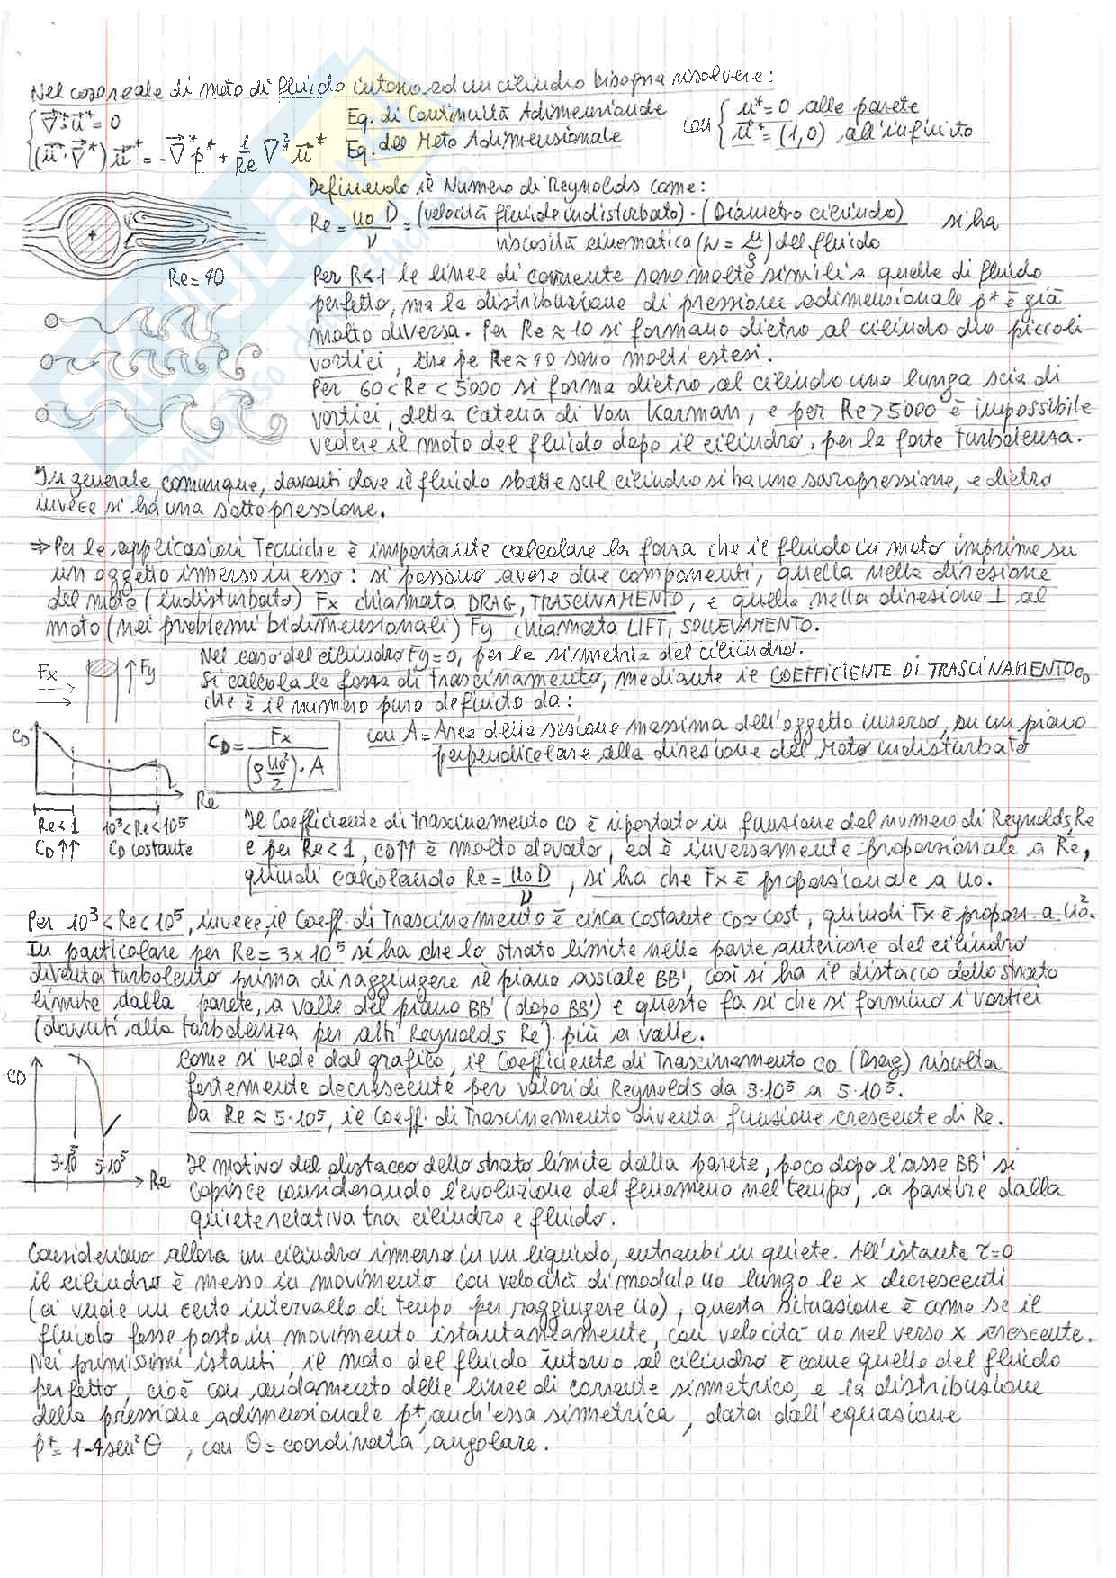 Nel caso reale di moto di fluido intorno ad un cilindro bisogna risolvere:
∇⃗*·u⃗*=0 Eq. di Continuità Adimensionale con { u⃗*=0 alle parete
(u⃗*·∇⃗*)u⃗*=-∇⃗*p*+1/Re ∇²*u⃗* Eq. del Moto Adimensionale u⃗*=(1,0) all'infinito
Definendo il Numero di Reynolds come:
Re=u₀D/ν=(velocità fluido indisturbato)·(Diametro cilindro)/viscosità cinematica (ν=μ/ρ) del fluido si ha
Re=40
Per Re<1 le linee di corrente sono molto simili a quelle di fluido
perfetto, ma la distribuzione di pressione adimensionale p* è già
molto diversa. Per Re≈10 si formano dietro al cilindro due piccoli
vortici, che pe Re≈40 sono molti estesi.
Per 60<Re<5000 si forma dietro al cilindro una lunga scia di
vortici, detta Catena di Von Karman, e per Re>5000 è impossibile
vedere il moto del fluido dopo il cilindro, per la forte turbolenza.
In generale comunque, davanti dove il fluido sbatte sul cilindro si ha una sovrapressione, e dietro
invece si ha una sottopressione.
⇒ Per le applicazioni Tecniche è importante calcolare la forza che il fluido in moto imprime su
un oggetto immerso in esso: si possono avere due componenti, quella nella direzione
del moto (indisturbato) Fx chiamata DRAG, TRASCINAMENTO, e quella nella direzione ⊥ al
moto (nei problemi bidimensionali) Fy chiamata LIFT, SOLLEVAMENTO.
Nel caso del cilindro Fy=0, per la simmetria del cilindro.
Fx Fy
Si calcola la forza di trascinamento, mediante il COEFFICIENTE DI TRASCINAMENTO CD
che è il numero puro definito da:
CD=Fx/((ρu₀²/2)·A) con A=Area della sezione massima dell'oggetto immerso, su un piano
perpendicolare alla direzione del Moto indisturbato
CD
Re
Re<1 10³<Re<10⁵
CD↑↑ CD costante
Il Coefficiente di trascinamento CD è riportato in funzione del numero di Reynolds, Re
e per Re<1, CD↑↑ è molto elevato, ed è inversamente proporzionale a Re,
quindi calcolando Re=u₀D/ν, si ha che Fx è proporzionale a u₀.
Per 10³<Re<10⁵, invece il Coeff. di Trascinamento è circa costante CD≈cost, quindi Fx è propor. a u₀².
In particolare per Re=3×10⁵ si ha che lo strato limite nella parte anteriore del cilindro
diventa turbolento prima di raggiungere il piano assiale BB', così si ha il distacco dello strato
limite dalla parete, a valle del piano BB' (dopo BB') e questo fa si che si formino i vortici
(dovuti alla turbolenza per alti Reynolds Re) più a valle.
Come si vede dal grafico, il Coefficiente di Trascinamento CD (Drag) risulta
fortemente decrescente per valori di Reynolds da 3·10⁵ a 5·10⁵.
Da Re≈5·10⁵, il Coeff. di Trascinamento diventa funzione crescente di Re.
CD
3·10⁵ 5·10⁵ Re
Il motivo del distacco dello strato limite dalla parete, poco dopo l'asse BB' si
capisce considerando l'evoluzione del fenomeno nel tempo, a partire dalla
quiete relativa tra cilindro e fluido.
Consideriamo allora un cilindro immerso in un liquido, entrambi in quiete. All'istante τ=0
il cilindro è messo in movimento con velocità di modulo u₀ lungo le x decrescenti
(ci vuole un certo intervallo di tempo per raggiungere u₀), questa situazione è come se il
fluido fosse posto in movimento istantaneamente, con velocità u₀ nel verso x crescente.
Nei primissimi istanti, il moto del fluido intorno al cilindro è come quello del fluido
perfetto, cioè con andamento delle linee di corrente simmetrico, e la distribuzione
della pressione adimensionale p*, anch'essa simmetrica, data dall'equazione
p*=1-4sen²θ, con θ=coordinata angolare.